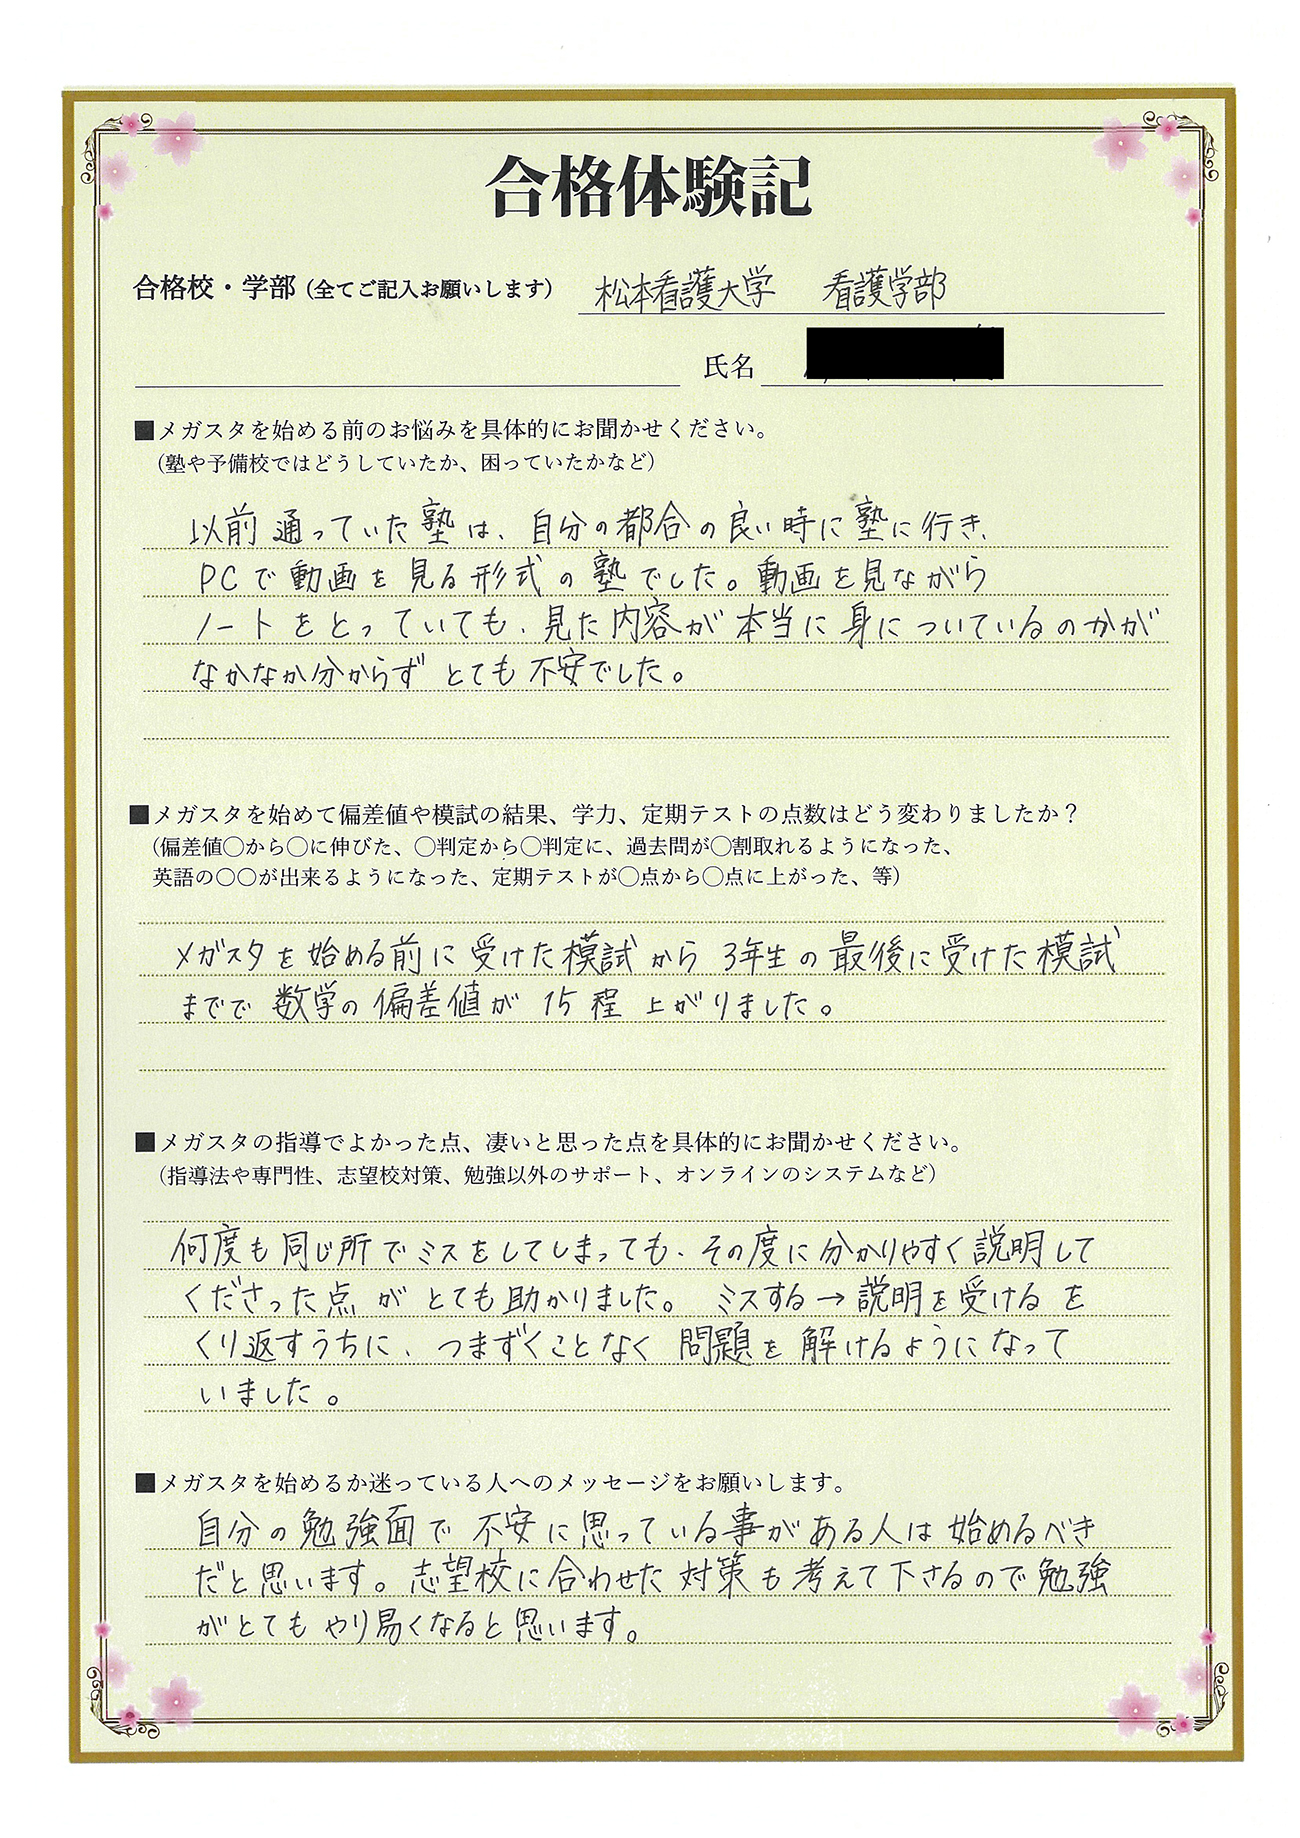 合格体験記
合格校・学部（全てご記入お願いします） 松本看護大学 看護学部
氏名
■メガスタを始める前のお悩みを具体的にお聞かせください。
（塾や予備校ではどうしていたか、困っていたかなど）
以前通っていた塾は、自分の都合の良い時に塾に行き、
PCで動画を見る形式の塾でした。動画を見ながら
ノートをとっていても、見た内容が本当に身についているのかが
なかなか分からずとても不安でした。
■メガスタを始めて偏差値や模試の結果、学力、定期テストの点数はどう変わりましたか？
（偏差値〇から〇に伸びた、〇判定から〇判定に、過去問が〇割取れるようになった、
英語の〇〇が出来るようになった、定期テストが〇点から〇点に上がった、等）
メガスタを始める前に受けた模試から3年生の最後に受けた模試
までで数学の偏差値が15程上がりました。
■メガスタの指導でよかった点、凄いと思った点を具体的にお聞かせください。
（指導法や専門性、志望校対策、勉強以外のサポート、オンラインのシステムなど）
何度も同じ所でミスをしてしまっても、その度に分かりやすく説明して
くださった点がとても助かりました。ミスする→説明を受けるを
くり返すうちに、つまずくことなく問題を解けるようになって
いました。
■メガスタを始めるか迷っている人へのメッセージをお願いします。
自分の勉強面で不安に思っている事がある人は始めるべき
だと思います。志望校に合わせた対策も考えて下さるので勉強
がとてもやり易くなると思います。